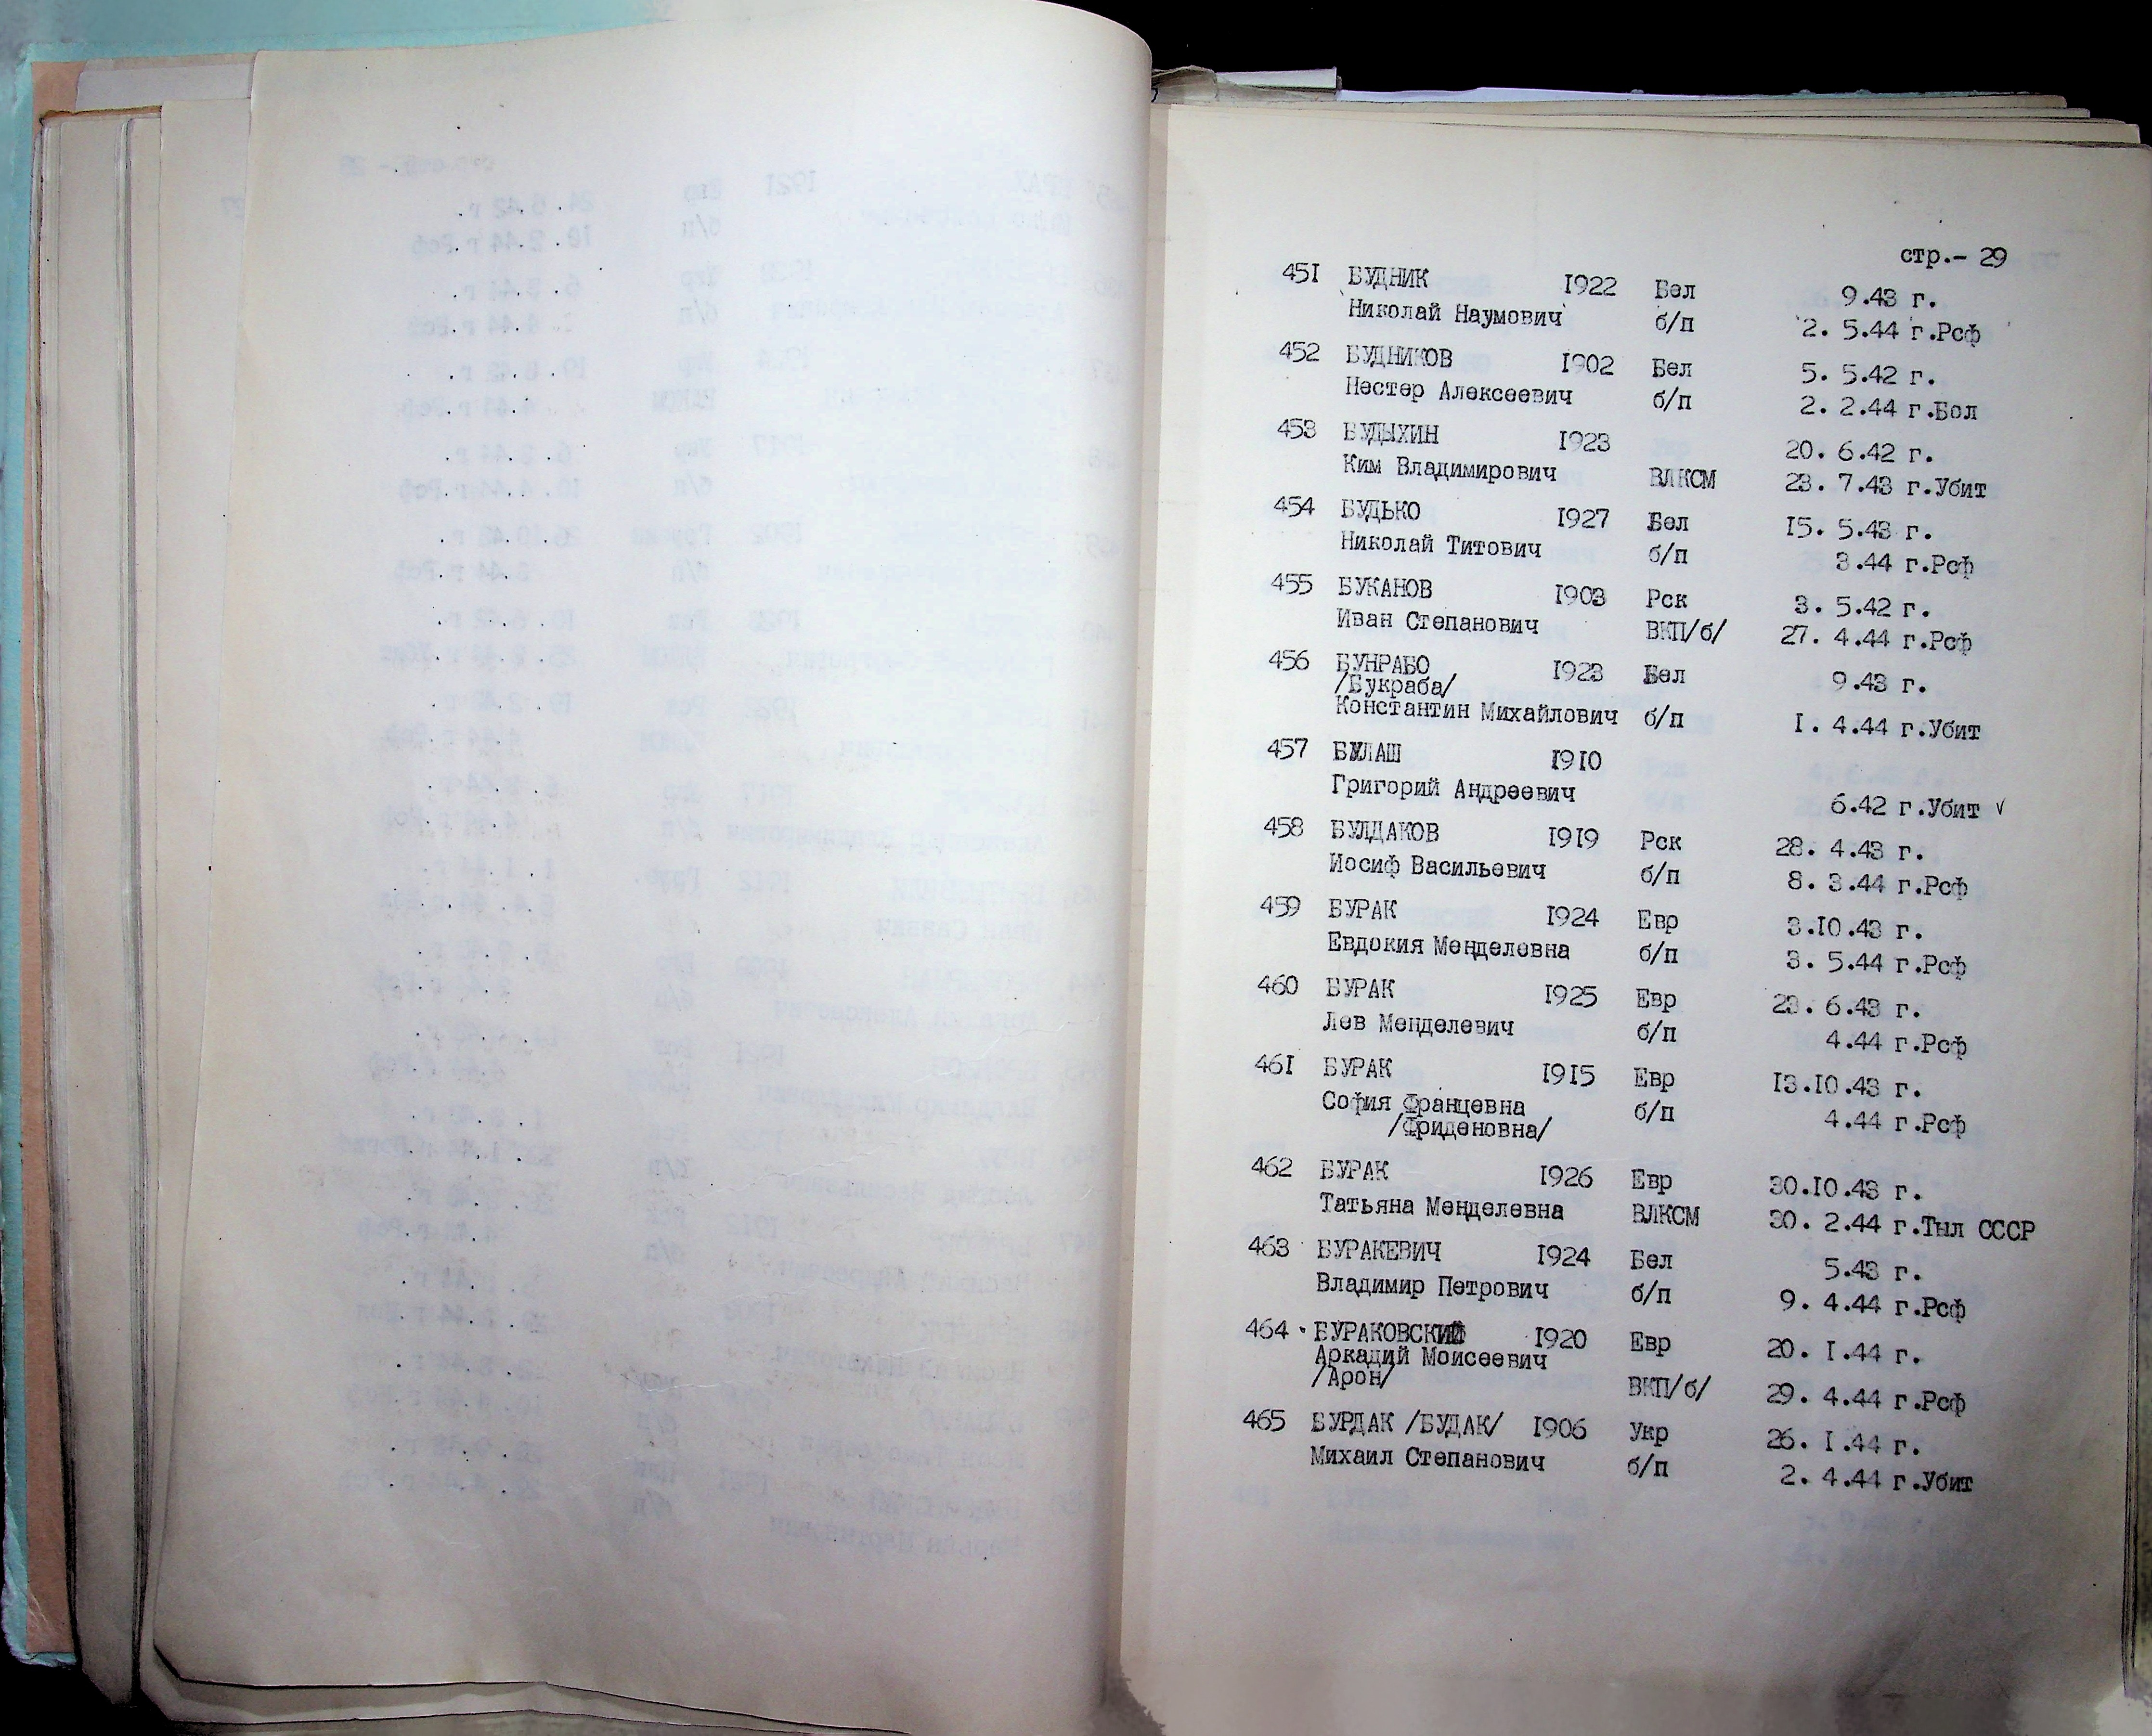 стр.- 29
451 БУДНИК 1922 Бел 9.43 г.
Николай Наумович б/п 2. 5.44 г.Рсф
452 БУДНИКОВ 1902 Бел 5. 5.42 г.
Нестер Алексеевич б/п 2. 2.44 г.Бол
453 БУДЫХИН 1923 20. 6.42 г.
Ким Владимирович ВЛКСМ 23. 7.43 г.Убит
454 БУДЬКО 1927 Бел 15. 5.43 г.
Николай Титович б/п 3.44 г.Рсф
455 БУКАНОВ 1903 Рск 3. 5.42 г.
Иван Степанович ВКП/б/ 27. 4.44 г.Рсф
456 БУНРАБО 1923 Бел 9.43 г.
/Букраба/
Константин Михайлович б/п 1. 4.44 г.Убит
457 БУЛАШ 1910
Григорий Андреевич 6.42 г.Убит √
458 БУЛДАКОВ 1919 Рск 28. 4.43 г.
Иосиф Васильевич б/п 8. 3.44 г.Рсф
459 БУРАК 1924 Евр 3.10.43 г.
Евдокия Менделевна б/п 3. 5.44 г.Рсф
460 БУРАК 1925 Евр 23. 6.43 г.
Лев Менделевич б/п 4.44 г.Рсф
461 БУРАК 1915 Евр 13.10.43 г.
София Францевна б/п 4.44 г.Рсф
/Фриденовна/
462 БУРАК 1926 Евр 30.10.43 г.
Татьяна Менделевна ВЛКСМ 30. 2.44 г.Тыл СССР
463 БУРАКЕВИЧ 1924 Бел 5.43 г.
Владимир Петрович б/п 9. 4.44 г.Рсф
464 БУРАКОВСКИЙ 1920 Евр 20. 1.44 г.
Аркадий Моисеевич
/Арон/ ВКП/б/ 29. 4.44 г.Рсф
465 БУРДАК /БУДАК/ 1906 Укр 26. 1.44 г.
Михаил Степанович б/п 2. 4.44 г.Убит